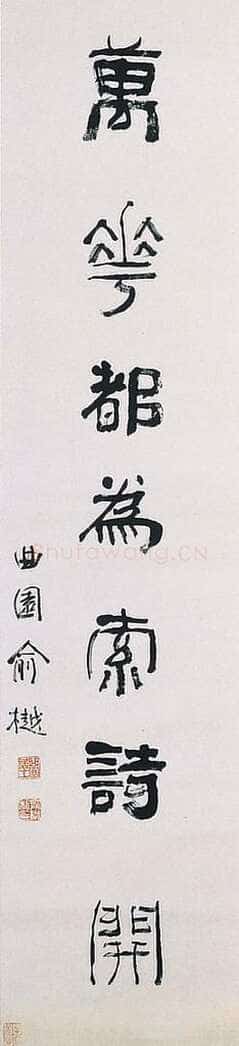 萬華都為索詩開
曲園俞樾
Shufawang.CN